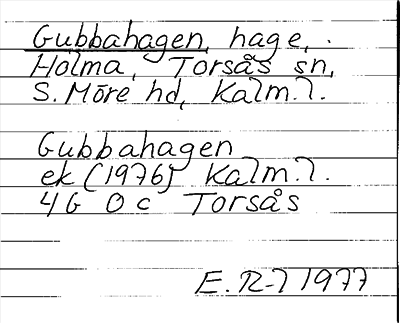 Gubbahagen, hage,.
Holma, Torsås sn,
S. Möre hd, Kalm. l.
Gubbahagen
ek (1976) Kalm. l.
4G 0c Torsås
E. R-l 1977